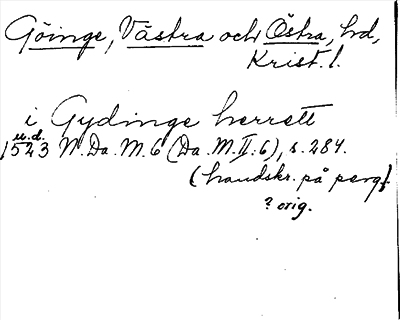 Göinge, Västra och Östra, hd,
Krist. l.
i Gydinge herrett
u.d.
1523 N. Da. M. 6 (Da. M. II. 6), s. 284.
(handskr. på perg.)
? orig.